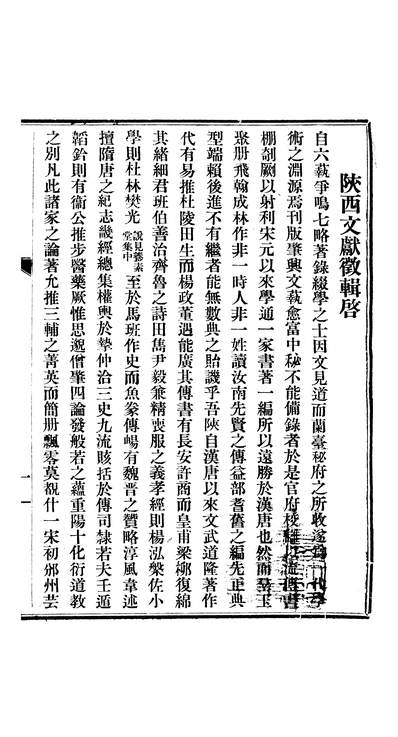 陝西文獻徵輯啓
自六蓺爭鳴七略著錄綴學之士因文見道而蘭臺秘府之所收遂爲一代學
術之淵源焉刊版肇興文蓺愈富中秘不能備錄者於是官府校
棚剞劂以射利宋元以來學通一家書著一編所以遠勝於漢唐也然而
聚册飛翰成林作非一時人非一姓讀汝南先賢之傳益部耆舊之編先正典
型端賴後進不有繼者能無數典之貽譏乎吾陝自漢唐以來文武道隆著作
代有易推杜陵田生而楊政董遇能廣其傳書有長安許商而皇甫梁栁復綿
其緒細君班伯善治齊魯之詩田雋尹毅兼精喪服之義孝經則楊泓槃佐小
學則杜林樊光說見養素堂集中至於馬班作史而魚豢傳嶋有魏晋之贊略淳風韋述
擅隋唐之紀志畿經總集權輿於摯仲洽三史九流賅括於傳司隸若夫壬遁
韜鈐則有衞公推步醫藥厥惟思邈僧肇四論發般若之蘊重陽十化衍道教
之別凡此諸家之論著允推三輔之菁英而簡册飄零莫覩什一宋初邠州芸
一